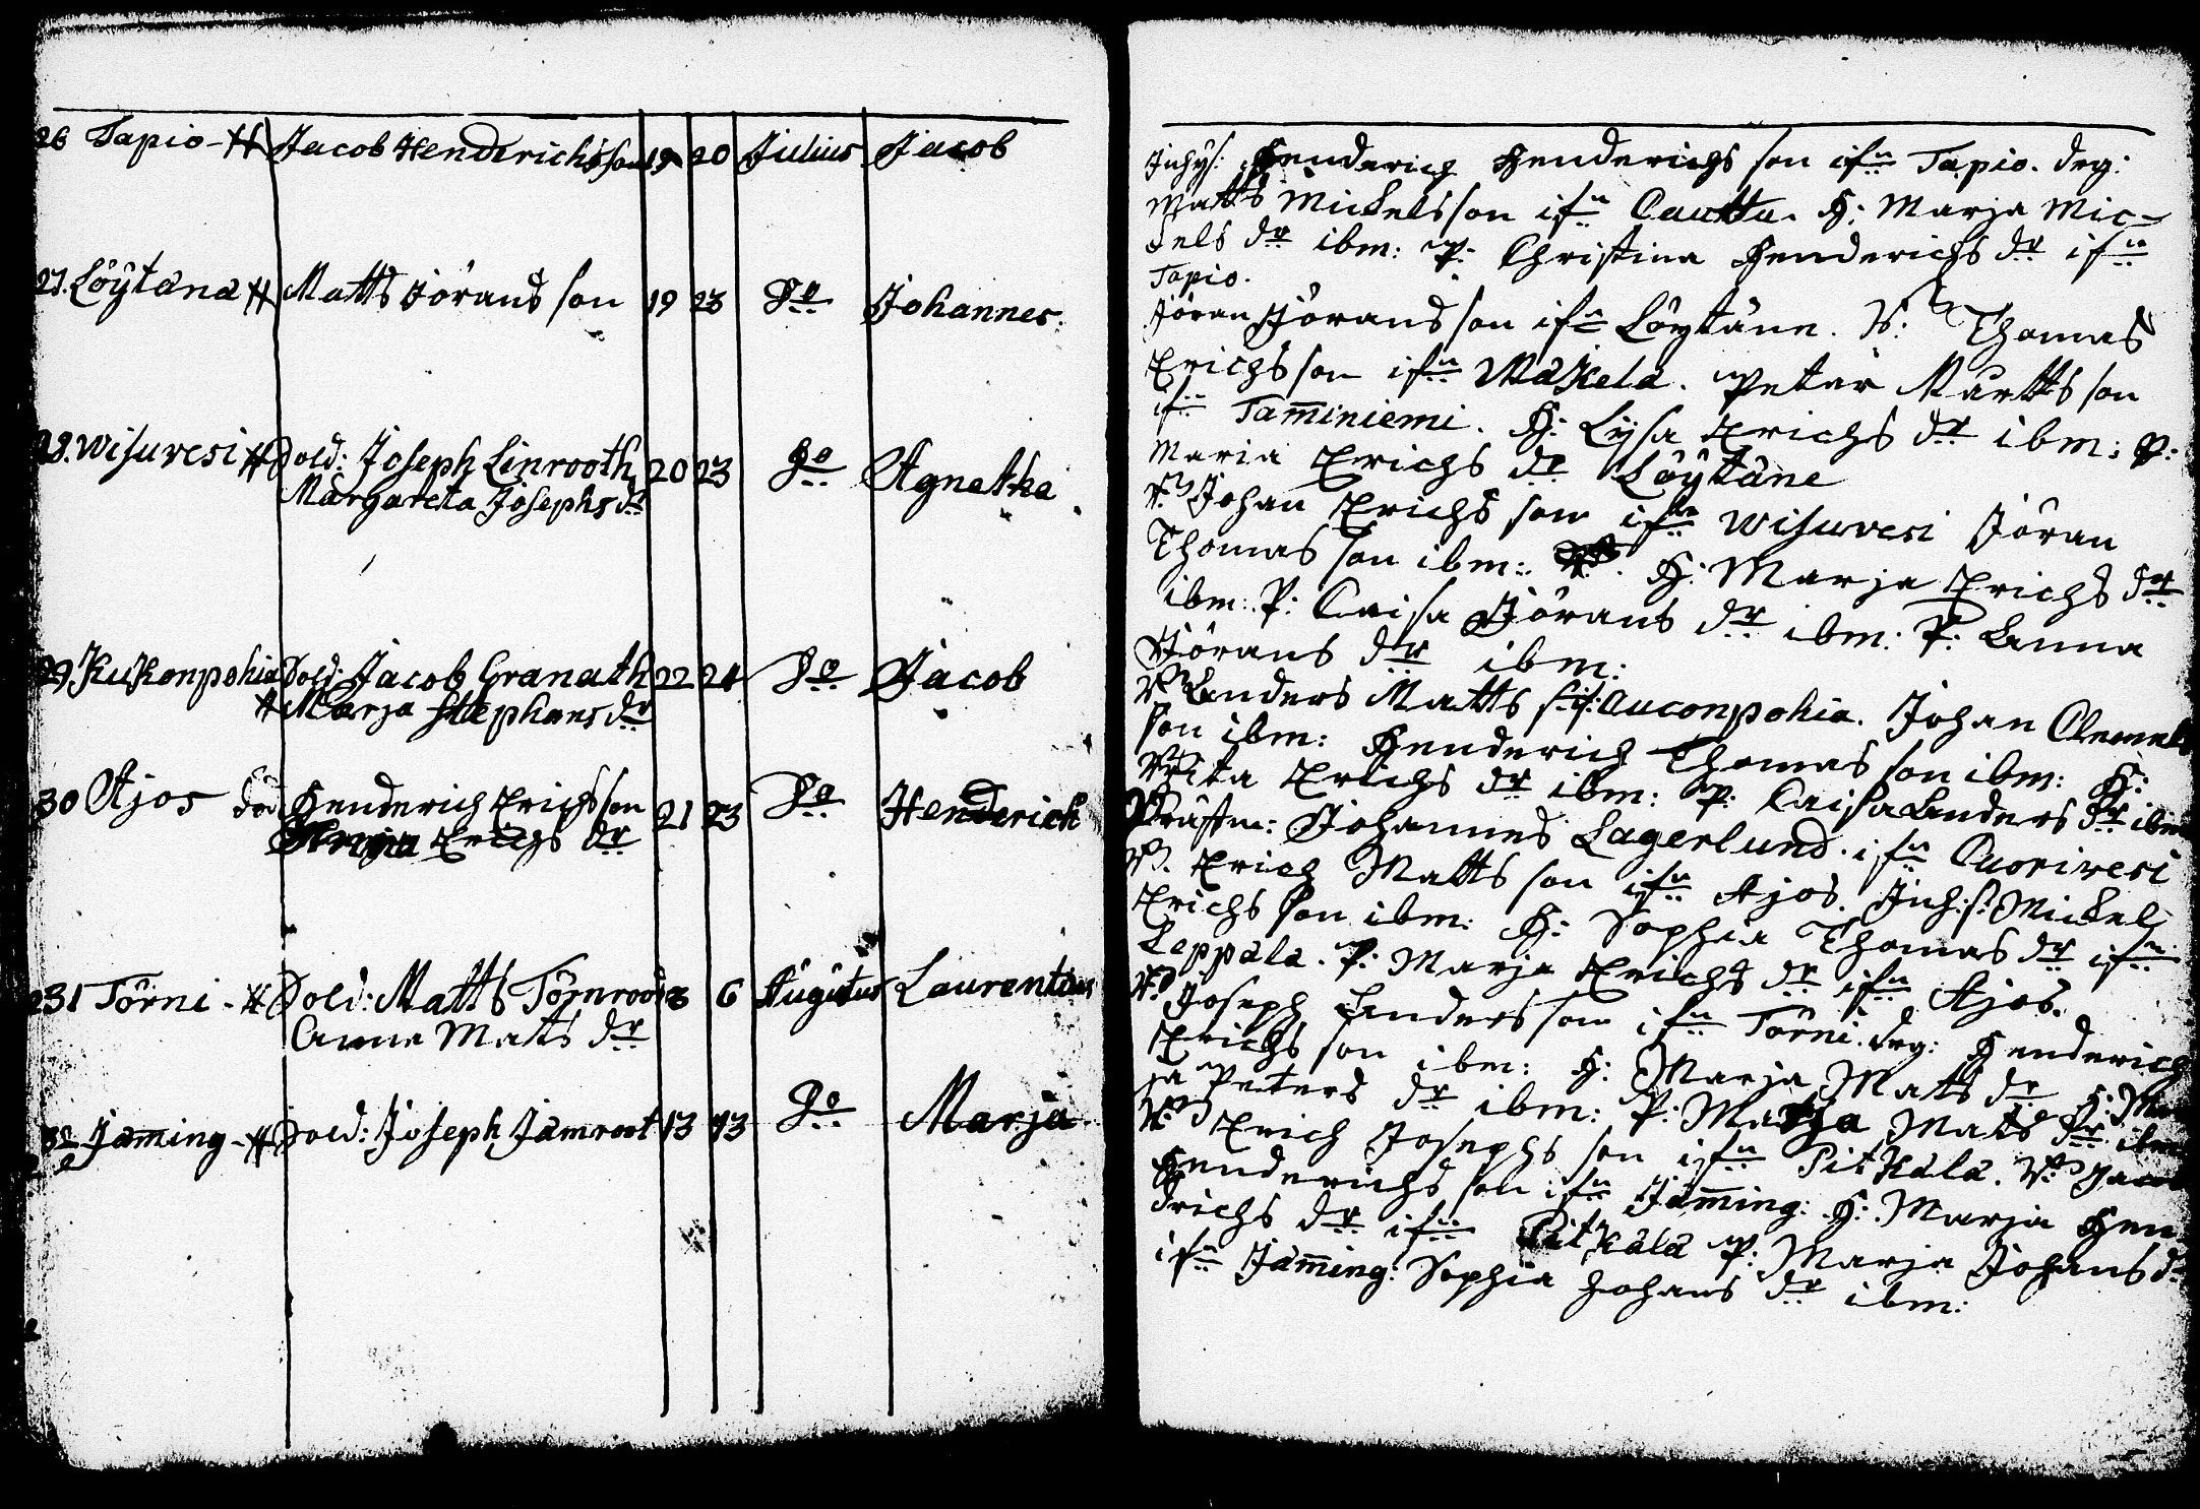 26 Tapio - H Jacob Henderichsson 19 20 Julius Jacob
27. Löytänä H Matts Jörans son 19 23 Do Johannes.
28. Wisuvesi H Sold: Joseph Linrooth 20 23 Do Agnetha
Margareta Josephs dr
29. Kukonpohia Sold: Jacob Granath 22 24 Do Jacob
H Marja Stephans dr
30 Ajos Henderich Erichsson 21 23 Do Henderich
Erichs dr
31 Törni - H Sold: Matts Törnroos 3 6 Augustus Laurentius
Anna Matts dr
32 Jäm̄ing - H Sold: Joseph Jämroot 13 13 Do Marja
Inhys: Henderich Henderichs son ifrn Tapio. drg:
Matts Mickelsson ifrn Cautta. H: Marja Mic=
kels dr ibm: P: Christina Henderichs dr ifrn
Tapio.
Jöran Jörans son ifrn Löytäne. N: Thomas
Erichsson ifrn Mäkelä. Petär Martts son
ifrn Tam̄iniemi. H: Lijsa Erichs dr ibm: P:
Maria Erichs dr Löytäne
N: Johan Erichs son ifrn Wisuvesi Jöran
Thomas son ibm: H: Marja Erichs dr
ibm: P: Caisa Jörans dr ibm: P: Anna
Jörans dr ibm:
N: Anders Matts Cuconpohia. Johan Clemets
son ibm: Henderich Thomas son ibm: H:
Erichs dr ibm: P: Caisa Anders dr ibm
Johannes Lagerlund. ifrn Cuorivesi
N. Erich Matts son ifrn Ajos. Inh:s: Mickel
Erichs son ibm: H: Sophia Thomas dr ifrn
Leppälä. P: Marja Erichs dr ifrn Ajos.
N: Joseph Anders son ifrn Törni. drg: Henderich
Erichs son ibm: H: Marja Matts dr H: Mar
ja Peters dr ibm: P: Marja Matts dr ibm
N: Erich Josephs son ifrn Pitkälä. N: Jacob
Henderichs son ifrn Jäm̄ing: H: Marja Hen
drichs dr ifrn Pitkälä P: Marja Johans dr
ifrn Jäm̄ing: Sophia Johans dr ibm: